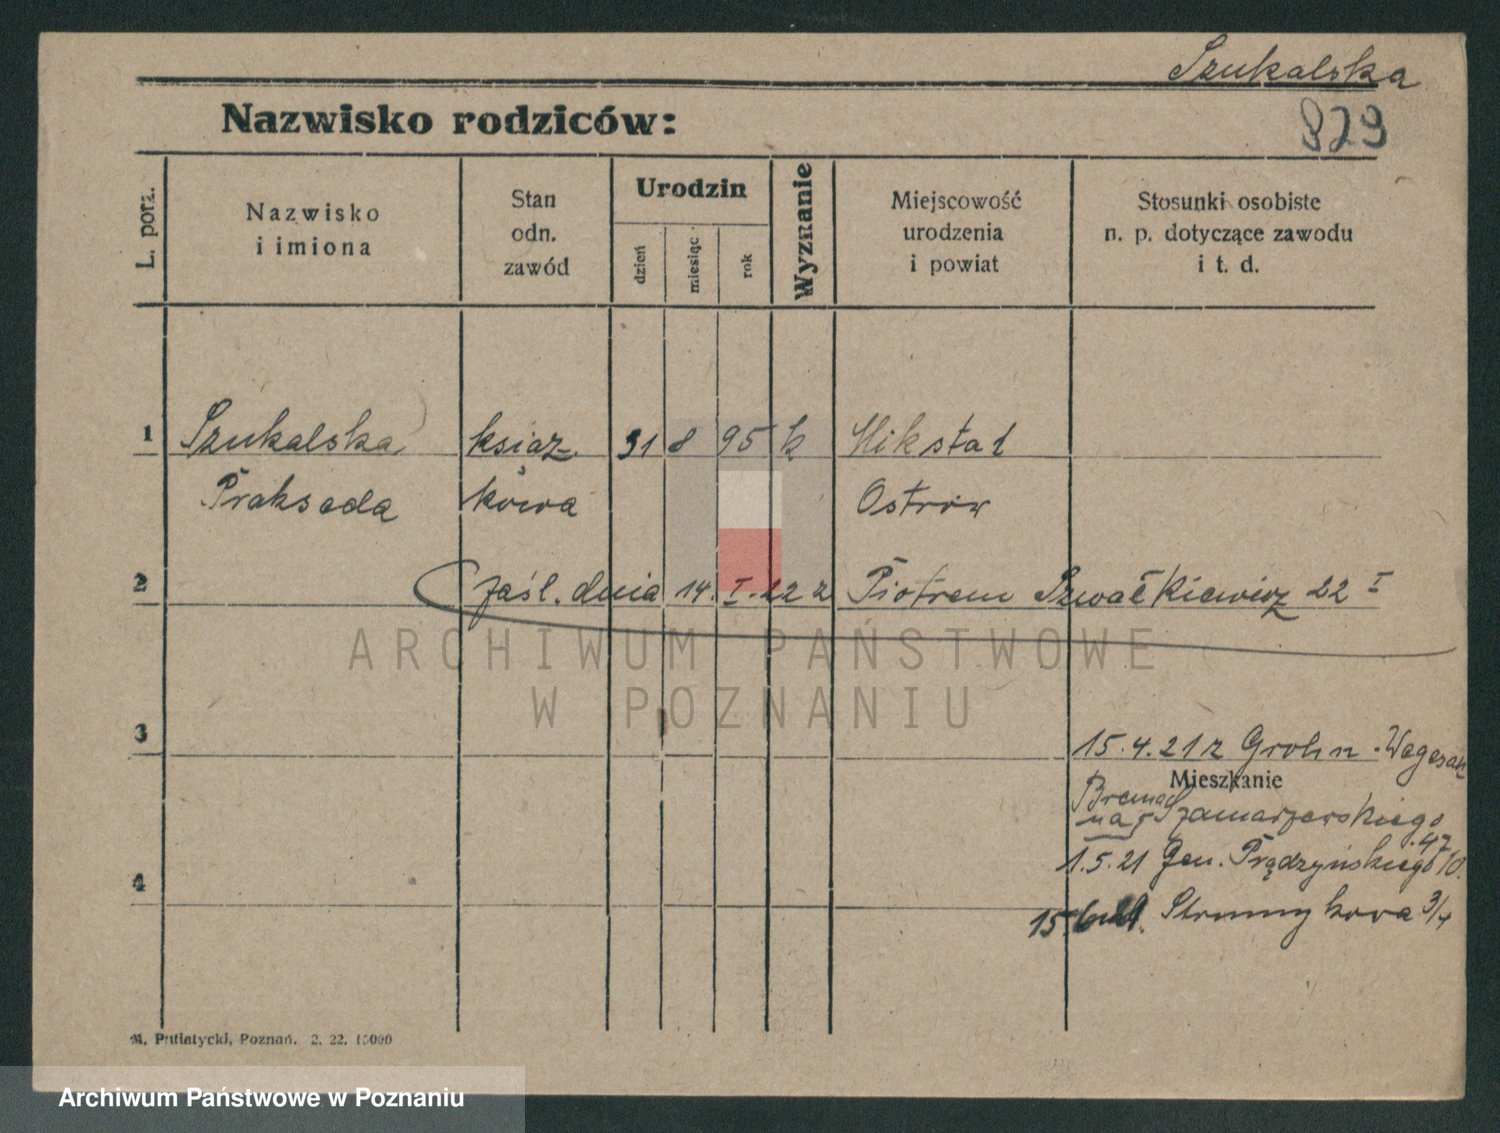 Szukalska
Nazwisko rodziców:
829
L. porz.
Nazwisko
i imiona
Stan
odn.
zawód
Urodzin
dzień
miesiąc
rok
Wyznanie
Miejscowość
urodzenia
i powiat
Stosunki osobiste
n. p. dotyczące zawodu
i t. d.
1 Szukalska książ- 31 8 95 k Mikstat
Prakseda kowa Ostrów
2 zaśl. dnia 14. I. 22 z Piotrem Szwałkiewicz 22 I
ARCHIWUM PAŃSTWOWE
W POZNANIU
3 15.4.21 z Grohn-Vegesack
Mieszkanie
Brema
na Szamarzewskiego
47
1.5.21 Gen. Prądzyńskiego
4
15. Strumykowa 3/4
M. Putiatycki, Poznań. 2. 22. 15000
Archiwum Państwowe w Poznaniu